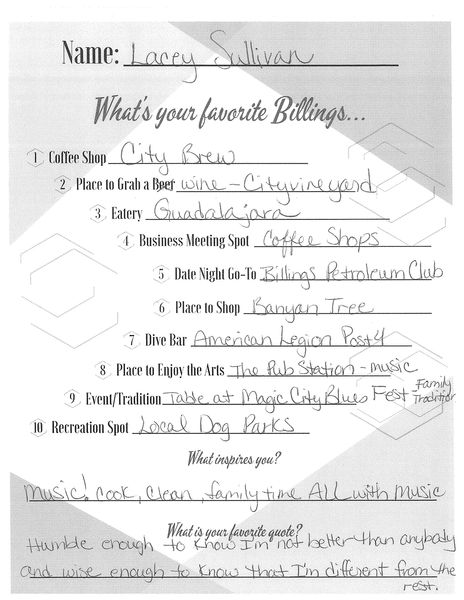 Name: Lacey Sullivan
What's your favorite Billings...
1 Coffee Shop City Brew
2 Place to Grab a Beer wine - Cityvineyard
3 Eatery Guadalajara
4 Business Meeting Spot Coffee Shops
5 Date Night Go-To Billings Petroleum Club
6 Place to Shop Banyan Tree
7 Dive Bar American Legion Post 4
8 Place to Enjoy the Arts The Pub Station - music
9 Event/Tradition Table at Magic City Blues Fest - Family Tradition
10 Recreation Spot Local Dog Parks
What inspires you?
Music! Cook, Clean, family time ALL with music
What is your favorite quote?
Humble enough to know I'm not better than anybody
and wise enough to know that I'm different from the
rest.